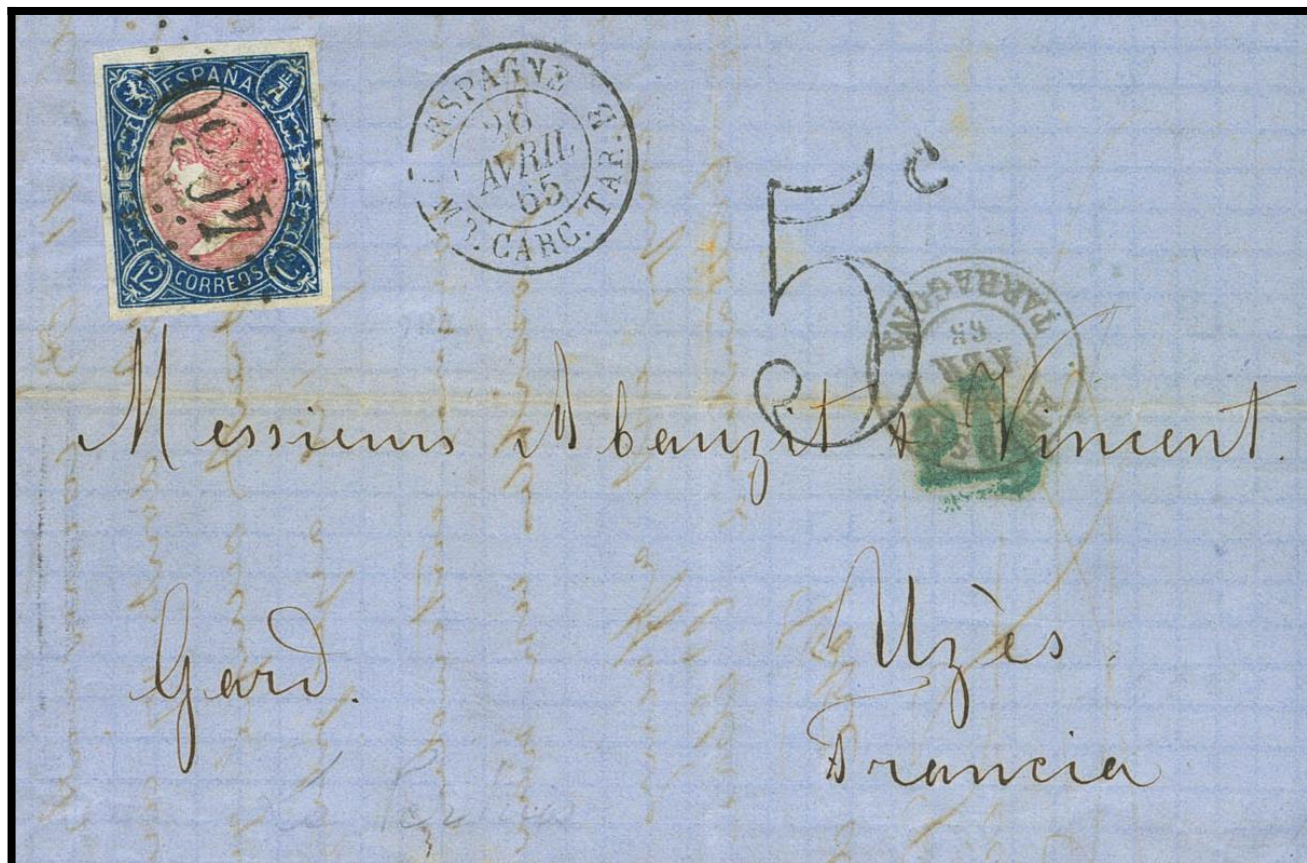 ESPAÑA
4089
12 Cs
CORREOS
ESPAGNE
26
AVRIL
65
M.2. CARC. TAR. 3
5c
TARRAGONA
ABR
65
Messieurs Abauzit & Vincent.
Gard.
Uzès.
Francia